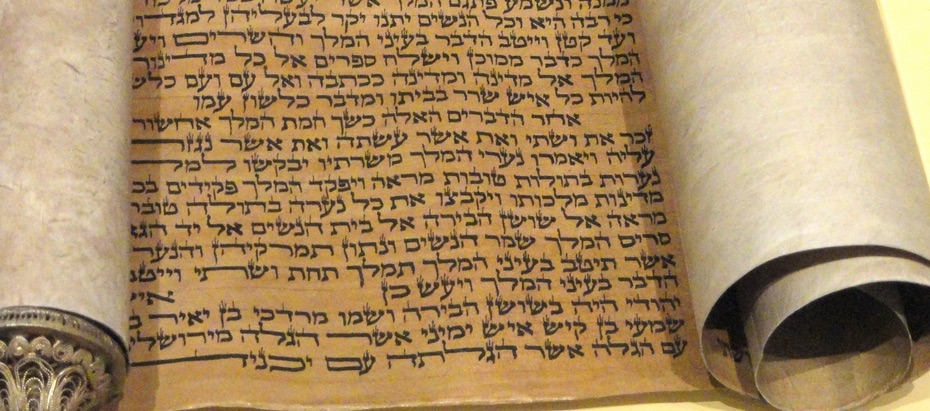 ממנה ונשמע פתגם המלך אשר
כי רבה היא וכל הנשים יתנו יקר לבעליהן למגדו
ועד קטן וייטב הדבר בעיני המלך והשרים ויע
המלך כדבר ממוכן וישלח ספרים אל כל מדינות
המלך אל מדינה ומדינה ככתבה ואל עם ועם כלש
להיות כל איש שרר בביתו ומדבר כלשון עמו
אחר הדברים האלה כשך חמת המלך אחשור
זכר את ושתי ואת אשר עשתה ואת אשר נגזר
עליה ויאמרו נערי המלך משרתיו יבקשו למל
נערות בתולות טובות מראה ויפקד המלך פקידים בכ
מדינות מלכותו ויקבצו את כל נערה בתולה טוב
מראה אל שושן הבירה אל בית הנשים אל יד הגא
סריס המלך שמר הנשים ונתון תמרקיהן והנער
אשר תיטב בעיני המלך תמלך תחת ושתי וייט
הדבר בעיני המלך ויעש כן אי
יהודי היה בשושן הבירה ושמו מרדכי בן יאיר ב
שמעי בן קיש איש ימיני אשר הגלה מירושלי
עם הגלה אשר הגלתה עם יכני